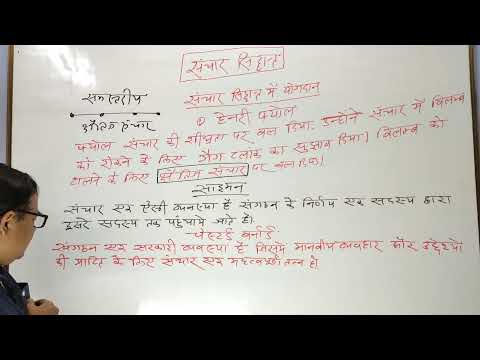 संचार सिद्धान्त
समस्तरीय
क्षैतिज संचार
संचार सिद्धान्त में योगदान
① हेनरी फेयोल
फेयोल संचार की शीघ्रता पर बल दिया. उन्होंने संचार में विलम्ब
को रोकने के लिए गैंग प्लांक का सुझाव दिया। (विलम्ब को
टालने के लिए क्षैतिज संचार पर बल दिया)
साइमन
संचार एक ऐसी व्यवस्था है संगठन के निर्णय एक सदस्य द्वारा
दूसरे सदस्य तक पहुंचाये जाते है।
चेस्टर्ड बर्नार्ड
संगठन एक सहकारी व्यवस्था है जिसमें मानवीय व्यवहार और उद्देश्यो
की प्राप्ति के लिए संचार एक महत्वपूर्ण तत्व है।